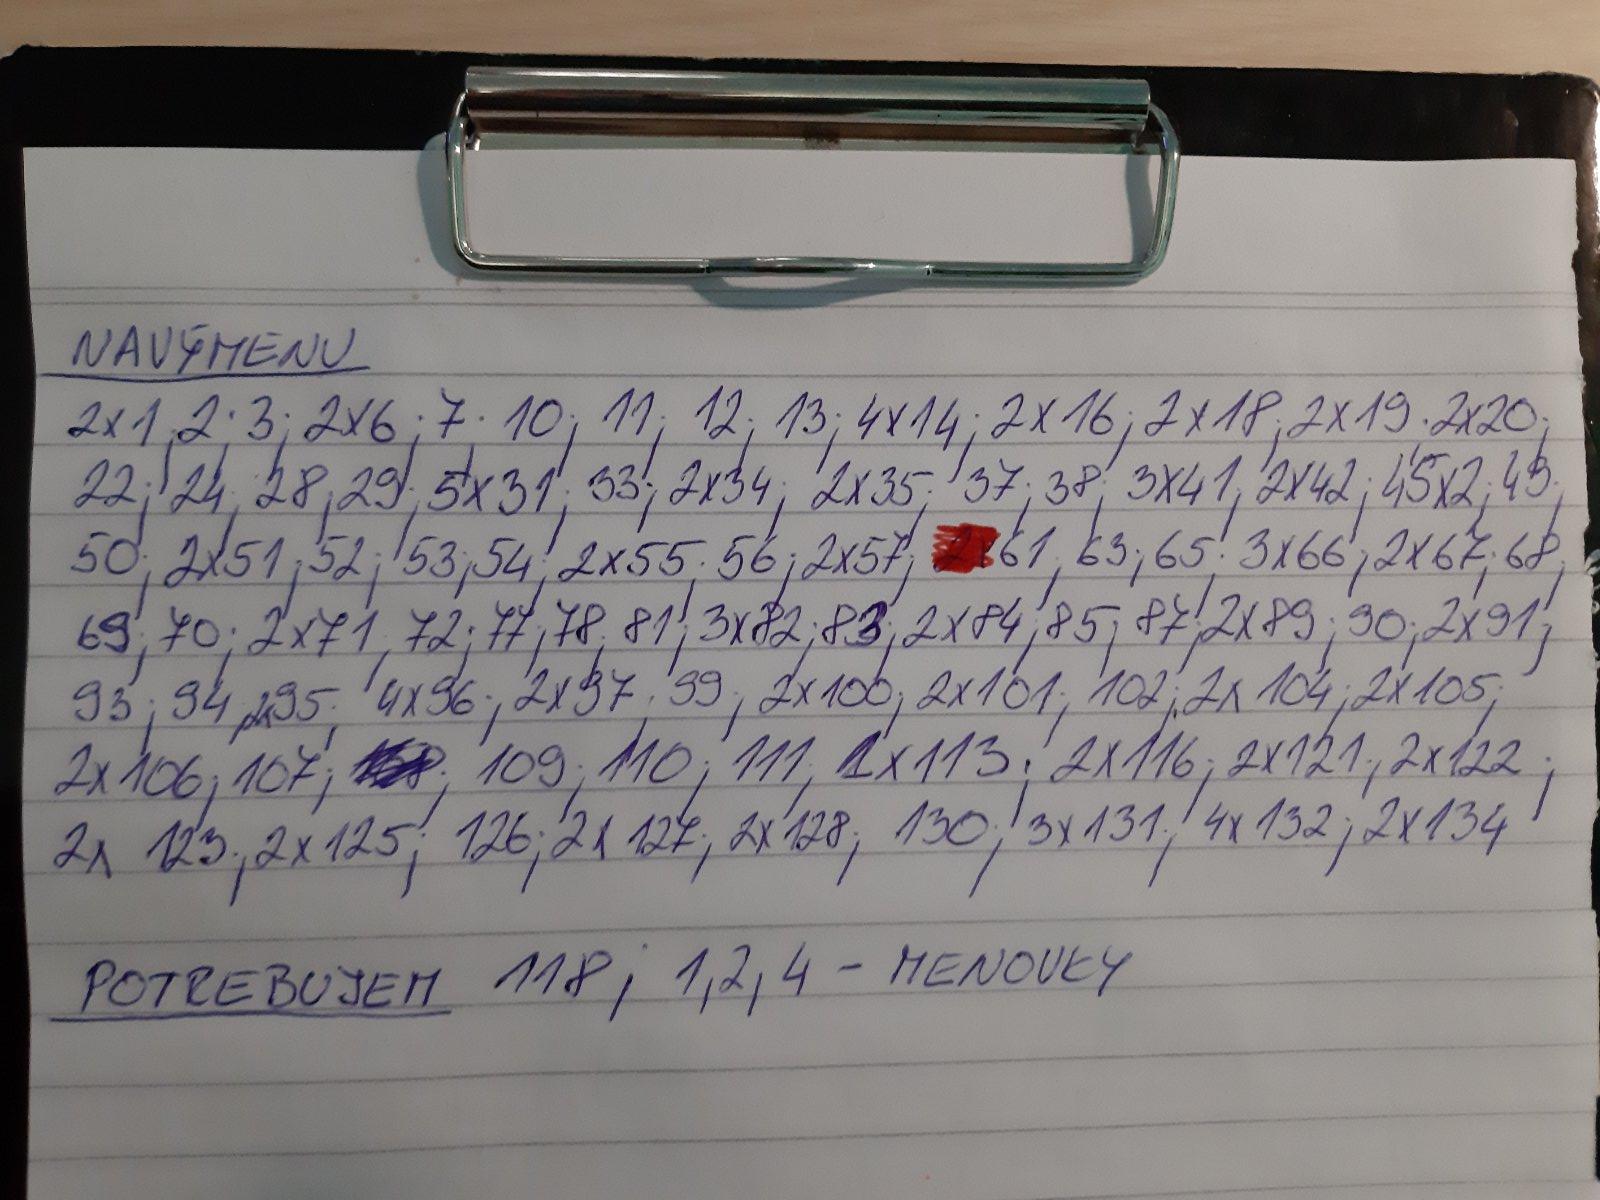 NA VÝMENU
2x1; 2; 3; 2x6; 7; 10; 11; 12; 13; 4x14; 2x16; 2x18; 2x19; 2x20;
22; 24; 28; 29; 5x31; 33; 2x34; 2x35; 37; 38; 3x41; 2x42; 45x2; 49;
50; 2x51; 52; 53; 54; 2x55; 56; 2x57; 61; 63; 65; 3x66; 2x67; 68;
69; 70; 2x71; 72; 77; 78; 81; 3x82; 83; 2x84; 85; 87; 2x89; 90; 2x91;
93; 94; 2x95; 4x96; 2x97; 99; 2x100; 2x101; 102; 2x104; 2x105;
2x106; 107; 109; 110; 111; 1x113; 2x116; 2x121; 2x122;
2x 123; 2x125; 126; 2x127; 2x128; 130; 3x131; 4x132; 2x134
POTREBUJEM 118; 1,2,4 - MENOVKY